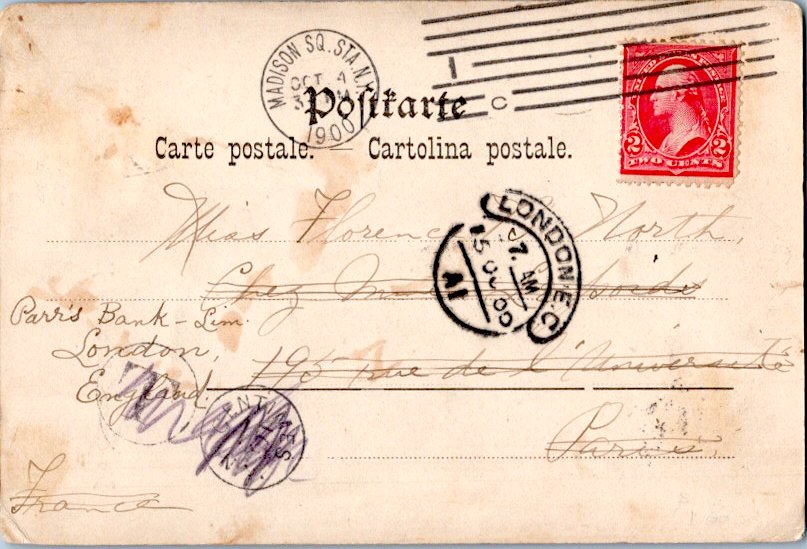 MADISON SQ. STA. N.Y.
OCT 4
1900
Postkarte
C
Carte postale. Cartolina postale.
UNITED STATES POSTAGE
2 2
TWO CENTS
LONDON. E.C
7. AM
15 OC 00
A1
Miss Florence North,
Chez Mme
Parr's Bank - Lim.
London,
England.
195 rue de l'Université
T
CENTIMES
Paris.
France